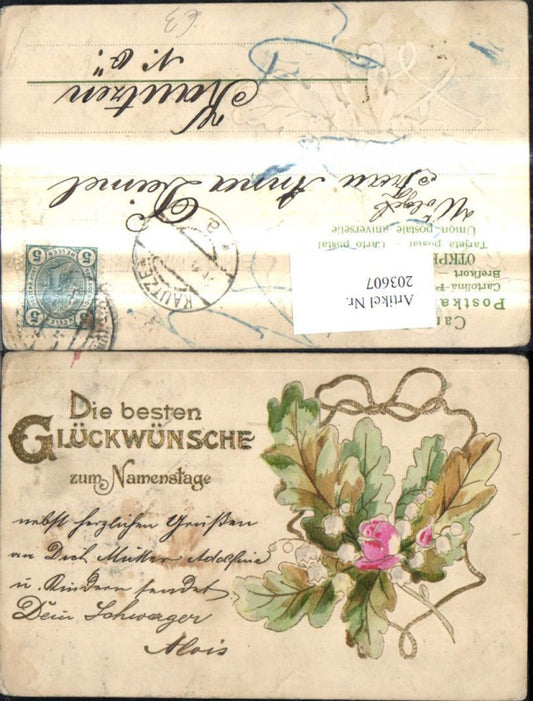 Kautzen
N. Ö.
Frau Anna Deimel
Wolgb.
Union postale universelle
Tarjeta postal - Carto postal
Brefkort
Cartolina
Postka
Car
Artikel Nr.
203607
KAUTZEN
a
5 5
5 5
Die besten
GLÜCKWÜNSCHE
zum Namenstage
nebst herzlichen Grüßen
an Dich Mutter Adolfine
u. Kindern sendet
Dein Schwager
Alois